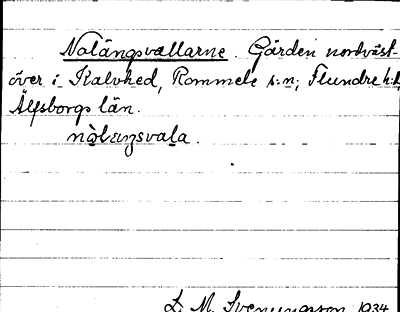 Nolängsvallarne. Gärden nordväst-
över i Kalvhed, Rommele s:n, Flundre h:d,
Älfsborgs län.
nòlaŋsvala.
L. M. Svenungsson 1934